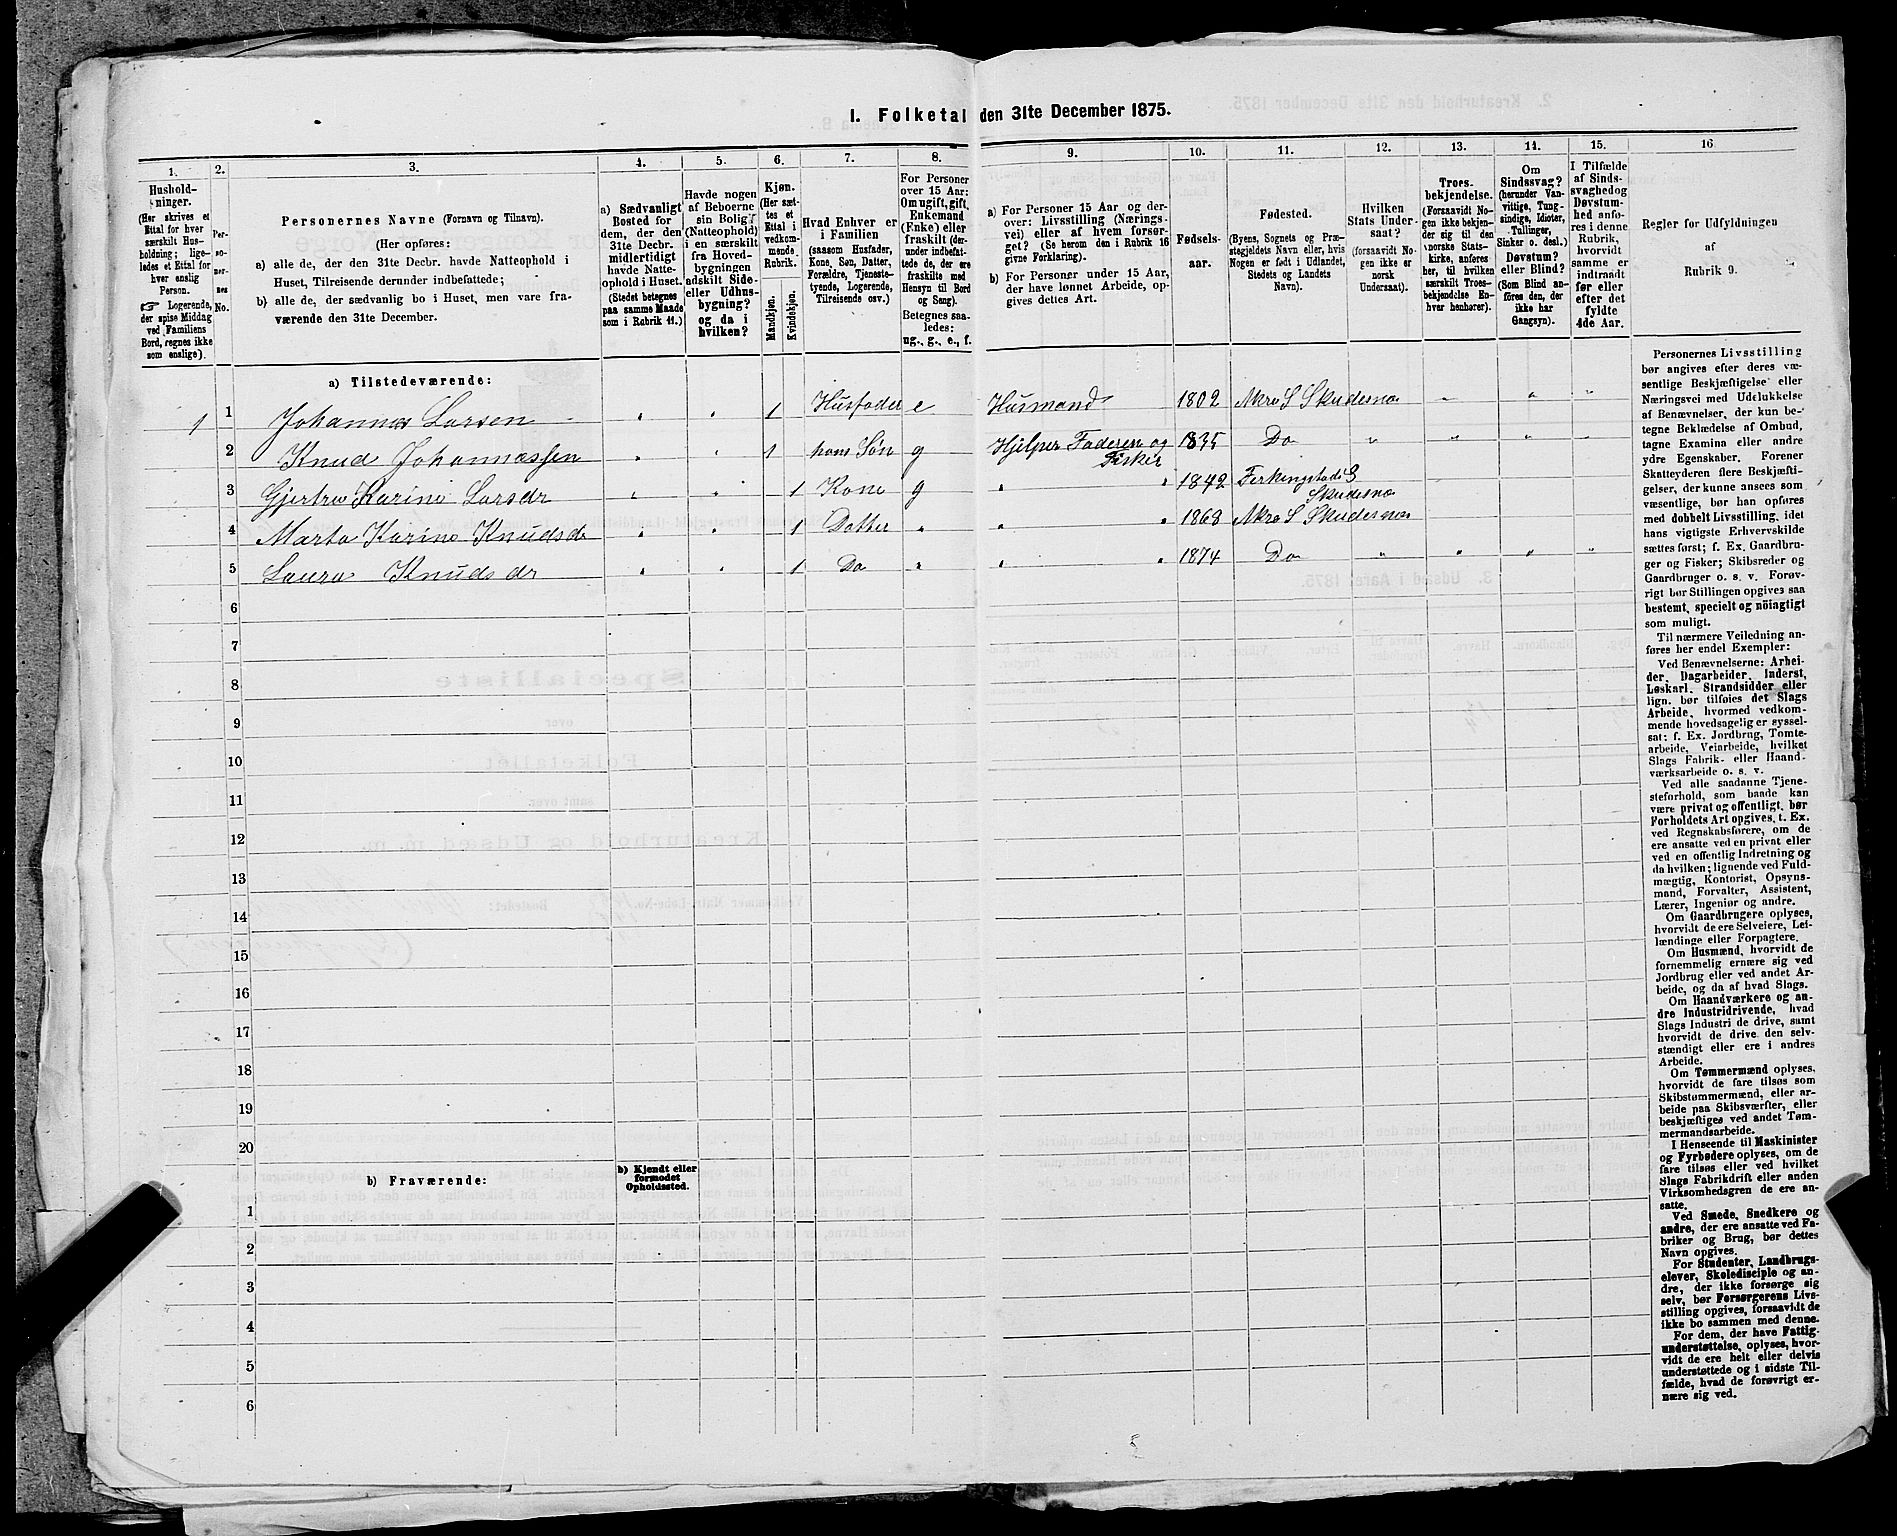 I. Folketal den 31te December 1875.
1. 2. 3. 4. 5. 6. 7. 8. 9. 10. 11. 12. 13. 14. 15. 16
Hushold-
ninger.
(Her skrives et
Ettal for hver
særskilt Hus-
holdning; lige-
ledes et Ettal for
hver enslig
Person.
☞ Logerende,
der spise Middag
ved Familiens
Bord, regnes ikke
som enslige).
Per-
so-
ner-
nes
No.
Personernes Navne (Fornavn og Tilnavn).
(Her opføres:
a) alle de, der den 31te Decbr. havde Natteophold i
Huset, Tilreisende derunder indbefattede;
b) alle de, der sædvanlig bo i Huset, men vare fra-
værende den 31te December.
a) Sædvanligt
Bosted for
dem, der den
31te Decbr.
midlertidigt
havde Natte-
ophold i Huset.
(Stedet betegnes
paa samme Maade
som i Rubrik 11.)
Havde nogen
af Beboerne
sin Bolig
(Natteophold)
i en særskilt
fra Hoved-
bygningen
adskilt Side-
eller Udhus-
bygning?
og da i
hvilken?
Kjøn.
(Her sæt-
tes et
Ettal i
vedkom-
mende
Rubrik.
Mandkjøn.
Kvindekjøn.
Hvad Enhver er
i Familien
(saasom Husfader,
Kone, Søn, Datter,
Forældre, Tjeneste-
tyende, Logerende,
Tilreisende osv.)
For Personer
over 15 Aar:
Om ugift, gift,
Enkemand
(Enke) eller
fraskilt (der-
under indbefat-
tede de, der ere
fraskilte med
Hensyn til Bord
og Seng).
Betegnes saa-
ledes:
ug., g., e., f.
a) For Personer 15 Aar og der-
over: Livsstilling (Nærings-
vei) eller af hvem forsør-
get? (Se herom den i Rubrik 16
givne Forklaring).
b) For Personer under 15 Aar,
der have lønnet Arbeide, op-
gives dettes Art.
Fødsels-
aar.
Fødested.
(Byens, Sognets og Præ-
stegjeldets Navn eller, hvis
Nogen er født i Udlandet,
Stedets og Landets
Navn).
Hvilken
Stats Under-
saat?
(forsaavidt No-
gen ikke er
norsk
Undersaat).
Troes-
bekjendelse.
(Forsaavidt No-
gen ikke bekjen-
der sig til den
norske Stats-
kirke, anføres
her, til hvilken
særskilt Troes-
bekjendelse En-
hver henhører).
Om
Sindssvag?
(herunder Van-
vittige, Tung-
sindige, Idioter,
Tullinger,
Sinker o. desl.)
Døvstum?
eller Blind?
(Som Blind an-
føres den, der
ikke har
Gangsyn).
I Tilfælde
af Sinds-
svaghed og
Døvstum-
hed anfø-
res i denne
Rubrik,
hvorvidt
samme er
indtraadt
før eller
efter det
fyldte
4de Aar.
Regler for Udfyldningen
af
Rubrik 9.
a) Tilstedeværende:
1 1 Johannes Larsen " " 1 Husfader e Husmand 1802 Akre S Skudesnæ " " "
2 Knud Johannessen " " 1 hans Søn g Hjelper Faderen og 1835 Do " " " "
Fisker
3 Gjertru Karine Larsdr " " 1 Kone g " " 1842 Ferkingstad S
Skudesnæ
4 Marta Karine Knudsdr " " 1 Datter " " " 1868 Akre S Skudesnæs
5 Laura Knudsdr " " 1 Do " " " 1874 Do " " " "
6
7
8
9
10
11
12
13
14
15
16
17
18
19
20
b) Fraværende:
b) Kjendt eller
formodet
Opholdssted.
1
2
3
4
5
6
Personernes Livsstilling
bør angives efter deres væ-
sentlige Beskjæftigelse eller
Næringsvei med Udelukkelse
af Benævnelser, der kun be-
tegne Beklædelse af Ombud,
tagne Examina eller andre
ydre Egenskaber. Forener
Skatteyderen flere Beskjæfti-
gelser, der kunne ansees som
væsentlige, bør han opføres
med dobbelt Livsstilling, idet
hans vigtigste Erhvervskilde
sættes først; f. Ex. Gaardbru-
ger og Fisker; Skibsreder og
Gaardbruger o. s. v. Forøv-
rigt bør Stillingen opgives saa
bestemt, specielt og nöiagtigt
som muligt.
Til nærmere Veiledning an-
føres her endel Exempler:
Ved Benævnelserne: Arbei-
der, Dagarbeider, Inderst,
Løskarl, Strandsidder eller
lign. bør tilføies det Slags
Arbeide, hvormed vedkom-
mende hovedsagelig er syssel-
sat: f. Ex. Jordbrug, Tomte-
arbeide, Veiarbeide, hvilket
Slags Fabrik- eller Haand-
værksarbeide o. s. v.
Ved alle saadanne Tjene-
steforhold, som baade kan
være privat og offentligt, bør
Forholdets Art opgives, t. Ex.
ved Regnskabsførere, om de
ere ansatte ved en privat eller
ved en offentlig Indretning og
da hvilken; lignende ved Fuld-
mægtig, Kontorist, Opsyns-
mand, Forvalter, Assistent,
Lærer, Ingeniør og andre.
Om Gaardbrugere oplyses,
hvorvidt de ere Selveiere, Lei-
lændinge eller Forpagtere.
Om Husmænd, hvorvidt de
fornemmelig ernære sig ved
Jordbrug eller ved andet Ar-
beide, og da af hvad Slags.
Om Haandværkere og an-
dre Industridrivende, hvad
Slags Industri de drive, samt
hvorvidt de drive den selv-
stændigt eller ere i andres
Arbeide.
Om Tømmermænd oplyses,
hvorvidt de fare tilsøs som
Skibstømmermænd, eller ar-
beide paa Skibsværfter, eller
beskjæftiges ved andet Tøm-
mermandsarbeide.
I Henseende til Maskinister
og Fyrbødere oplyses, om de
fare tilsøs eller ved hvilket
Slags Fabrikdrift eller anden
Virksomhedsgren de ere an-
satte.
Ved Smede, Snedkere og
andre, der ere ansatte ved Fa-
briker og Brug, bør dettes
Navn opgives.
For Studenter, Landbrugs-
elever, Skoledisciple og an-
dre, der ikke forsørge sig
selv, bør Forsørgerens Livs-
stilling opgives, forsaavidt de
ikke bo sammen med denne.
For dem, der have Fattig-
understøttelse, oplyses, hvor-
vidt de ere helt eller delvis
understøttede og i sidste Til-
fælde, hvad de forøvrigt er-
nære sig ved.